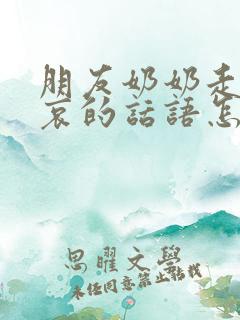 朋友奶奶走
哀的話語怎
思曜文學
未任同意禁止轉載